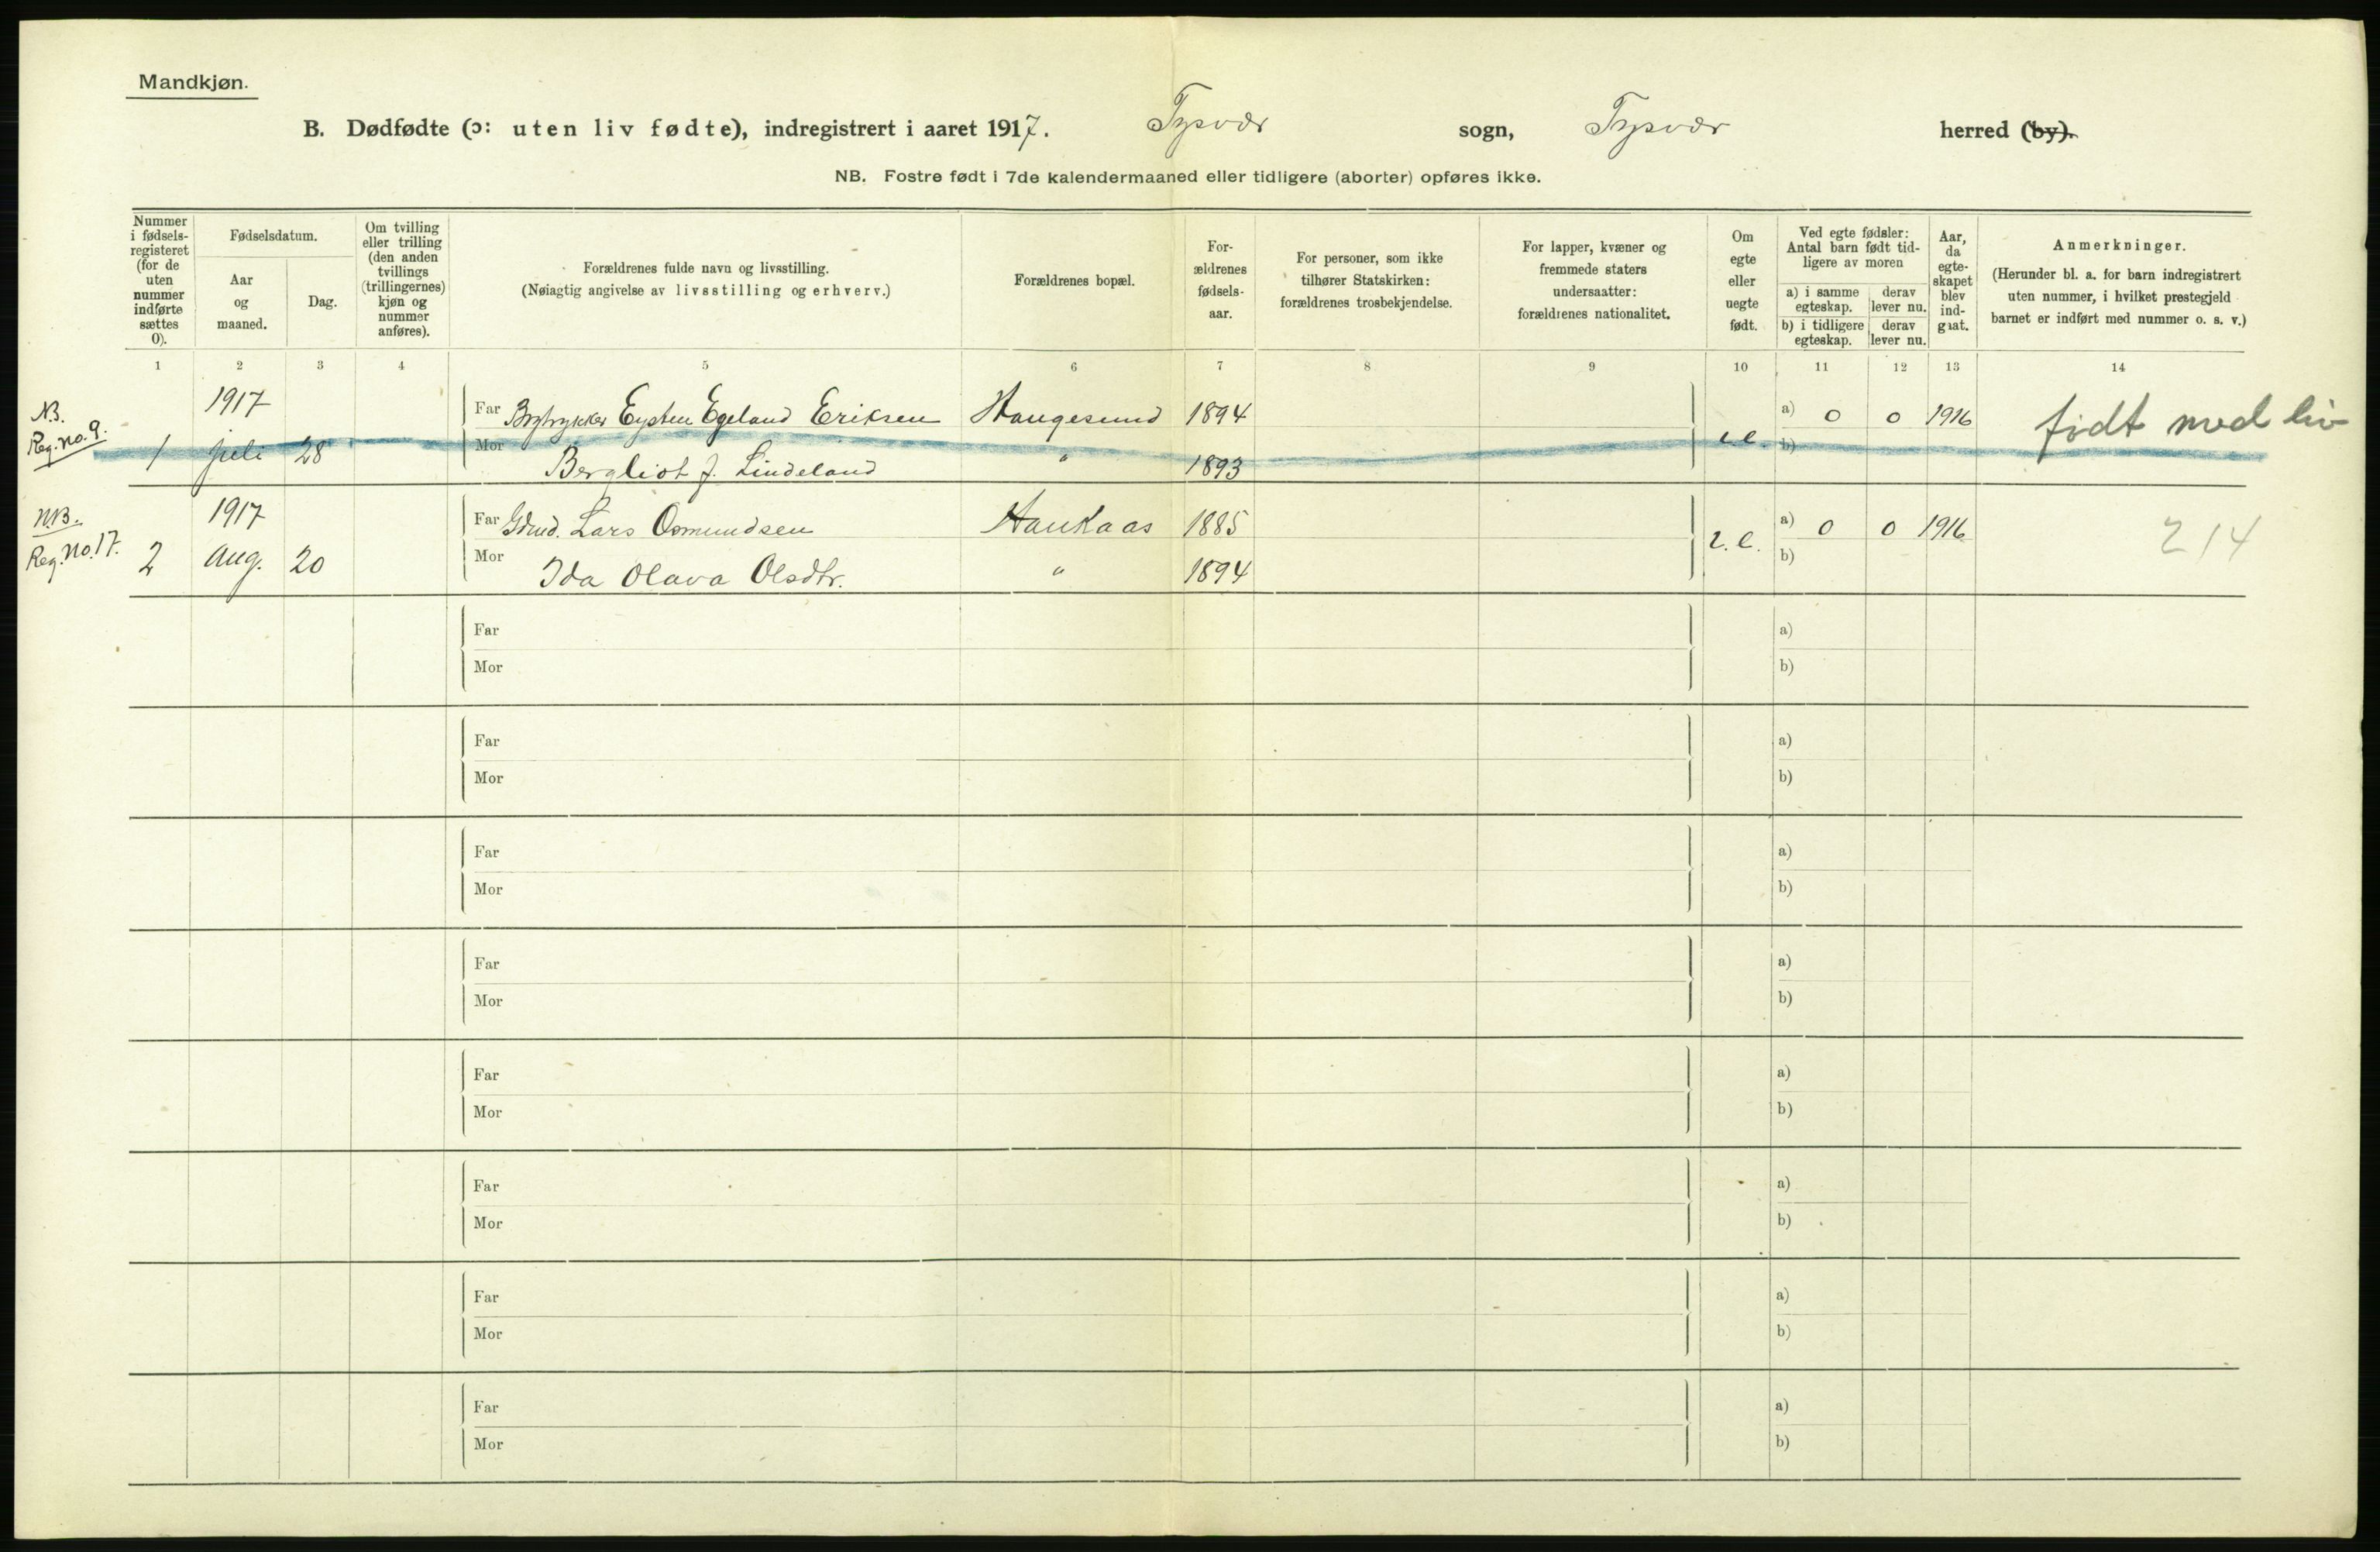 Mandkjøn.
B. Dødfødte (ɔ: uten liv fødte), indregistrert i aaret 1917. Tysvær sogn, Tysvær herred (by).
NB. Fostre født i 7de kalendermaaned eller tidligere (aborter) opføres ikke.
Nummer i fødsels-registeret (for de uten nummer indførte sættes 0).
Fødselsdatum.
Aar og maaned.
Dag.
Om tvilling eller trilling (den anden tvillings (trillingernes) kjøn og nummer anføres).
Forældrenes fulde navn og livsstilling.
(Nøiagtig angivelse av livsstilling og erhverv.)
Forældrenes bopæl.
For-ældrenes fødsels-aar.
For personer, som ikke tilhører Statskirken: forældrenes trosbekjendelse.
For lapper, kvæner og fremmede staters undersaatter: forældrenes nationalitet.
Om egte eller uegte født.
Ved egte fødsler: Antal barn født tid-ligere av moren
a) i samme egteskap. derav lever nu.
b) i tidligere egteskap. derav lever nu.
Aar, da egte-skapet blev ind-gaat.
Anmerkninger.
(Herunder bl. a. for barn indregistrert uten nummer, i hvilket prestegjeld barnet er indført med nummer o. s. v.)
1 2 3 4 5 6 7 8 9 10 11 12 13 14
N.B. 1917 Far Eysten Egeland Eriksen Haugesund 1894 a) 0 0 1916 født med liv
Reg. No. 9. 1 juli 28 Mor Bergliot J. Lindeland " 1893 e. b)
N.B. 1917 Far Gdmd. Lars Osmundsen Haukaas 1885 a) 0 0 1916 214
Reg. No. 17. 2 Aug. 20 Mor Ida Olava Olsdtr. " 1894 e. b)
Far a)
Mor b)
Far a)
Mor b)
Far a)
Mor b)
Far a)
Mor b)
Far a)
Mor b)
Far a)
Mor b)
Far a)
Mor b)
Far a)
Mor b)